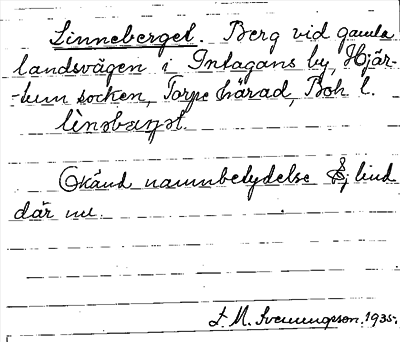 Linneberget. Berg vid gamla
landsvägen i Intagans by, Hjär-
-tum socken, Torpe härad, Boh l.
Okänd namnbetydelse Ej lind
där nu.
J. M. Svenningsson. 1935.